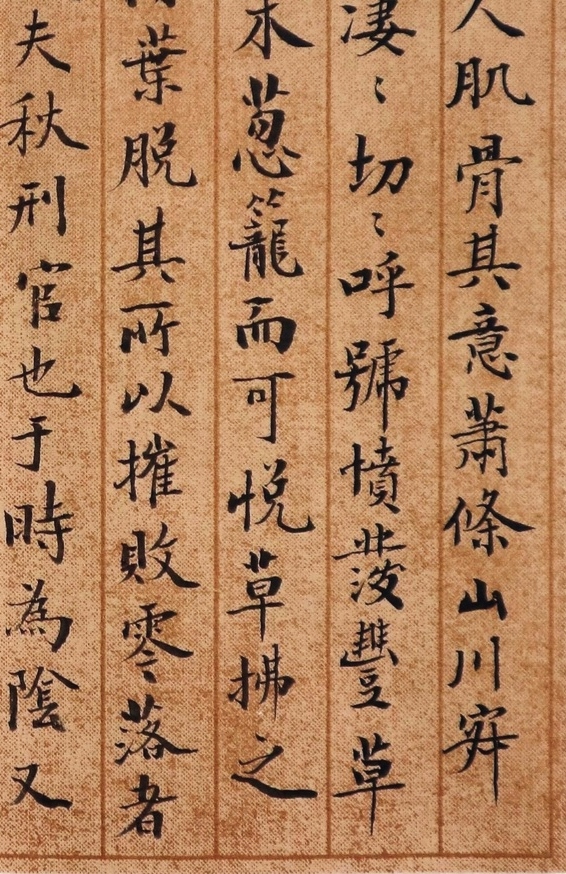 人肌骨其意蕭條山川寂
凄〻切〻呼號憤發豐草
木葱籠而可悅草拂之
葉脫其所以摧敗零落者
夫秋刑官也于時為陰又